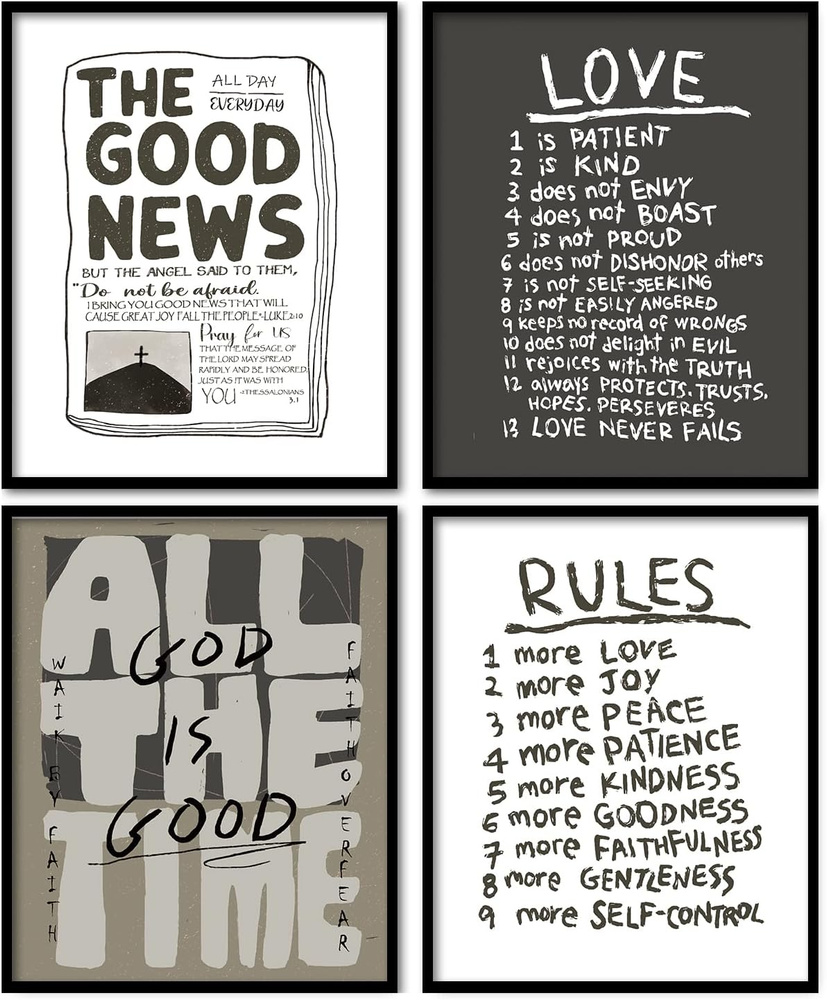 THE
ALL DAY
EVERYDAY
GOOD
NEWS
BUT THE ANGEL SAID TO THEM,
"Do not be afraid.
I BRING YOU GOOD NEWS THAT WILL
CAUSE GREAT JOY F ALL THE PEOPLE"-LUKE 2:10
Pray for US
THAT THE MESSAGE OF
THE LORD MAY SPREAD
RAPIDLY AND BE HONORED,
JUST AS IT WAS WITH
YOU -1 THESSALONIANS
3.1
LOVE
1 is PATIENT
2 is KIND
3 does not ENVY
4 does not BOAST
5 is not PROUD
6 does not DISHONOR others
7 is not SELF-SEEKING
8 is not EASILY ANGERED
9 keeps no record of WRONGS
10 does not delight in EVIL
11 rejoices with the TRUTH
12 always PROTECTS. TRUSTS.
HOPES. PERSEVERES
13 LOVE NEVER FAILS
ALL
THE
TIME
GOD
IS
GOOD
WALK BY FAITH
FAITH OVER FEAR
RULES
1 more LOVE
2 more JOY
3 more PEACE
4 more PATIENCE
5 more KINDNESS
6 more GOODNESS
7 more FAITHFULNESS
8 more GENTLENESS
9 more SELF-CONTROL